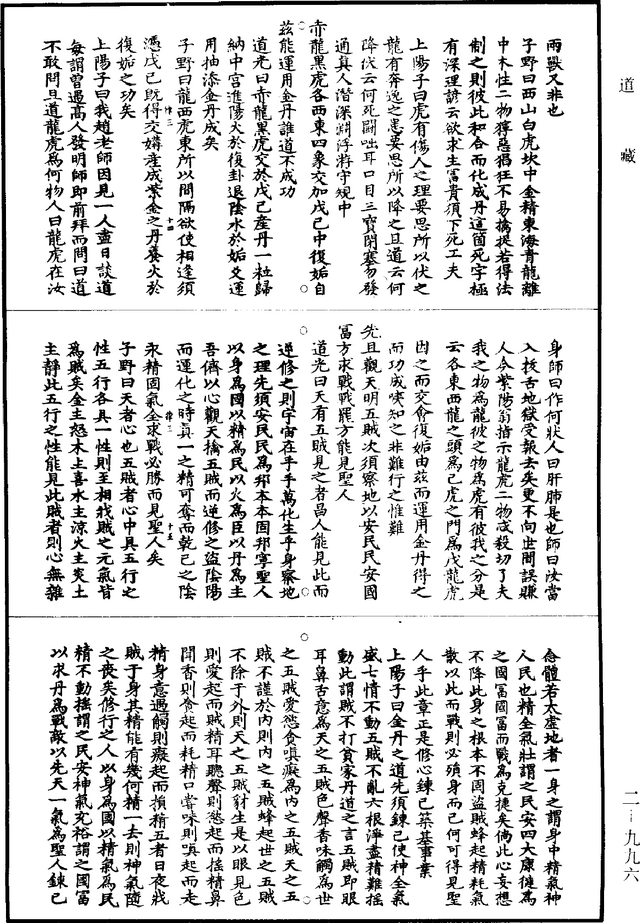 道藏
兩獸又非也
子野曰西山白虎坎中金精東海青龍離
中木性二物獰惡猖狂不易擒捉若得法
制之則彼此和合而化成丹這箇死字極
有深理諺云欲求生富貴須下死工夫
上陽子曰虎有傷人之理要思所以伏之
龍有奔逸之患要思所以降之且道云何
降伏云何死鬭咄耳口目三寶閉塞勿發
通真人潛深淵浮游守規中
赤龍黑虎各西東四象交加戊己中復姤自
茲能運用金丹誰道不成功
道光曰赤龍黑虎交於戊己產丹一粒歸
納中宮進陽火於復卦退陰水於姤爻運
用抽添金丹成矣
子野曰龍西虎東所以間隔欲使相逢須
憑戊己既得交媾產成紫金之丹養火於
復姤之功矣
上陽子曰我趙老師因見一人盡日談道
每謂曾遇高人發明師即前拜而問曰道
不敢問且道龍虎爲何物人曰龍虎在汝
身師曰作何狀人曰肝肺是也師曰汝當
入拔舌地獄受報去矣更不向世間誤賺
人今紫陽翁指示龍虎二物忒殺切了夫
我之物爲龍彼之物爲虎有彼我之分是
云各東西龍之頭爲己虎之門爲戊龍虎
因之而交會復姤由茲而運用金丹得之
而功成知之非難行之惟難
先且觀天明五賊次須察地以安民民安國
富方求戰戰罷方能見聖人
道光曰天有五賊見之者昌人能見此而
逆修之則宇宙在乎手萬化生乎身察地
之理先須安民民爲邦本本固邦寧聖人
以身爲國以精爲民以火爲臣以丹爲主
吾儕以心觀天擒五賊而逆修之盜陰陽
而運化之時真一之精可奪而乾己之陰
汞精固氣全求戰必勝而見聖人矣
子野曰天者心也五賊者心中具五行之
性五行各具一性則至相戕賊之元氣皆
爲賊矣金主怒木主喜水主淫火主炎土
主靜此五行之性能見此賊者則心無雜
念體若太虛地者一身之謂身中精氣神
人民也精全氣壯謂之民安四大康健爲
之國富國富而戰爲克捷矣倘此心妄想
不降此身之根本不固盜賊蜂起精耗氣
散以此而戰則必殞身而已何可得見聖
人乎此章正是修心鍊己築基事業
上陽子曰金丹之道先須鍊己使神全氣
盛七情不動五賊不亂六根淨盡精難搖
動此謂賊不打貧家丹道之言五賊即眼
耳鼻舌意爲天之五賊色聲香味觸爲世
之五賊愛慾貪嗔癡爲內之五賊天之五
賊不謹於內則內之五賊蜂起世之五賊
不除于外則天之五賊豺生是以眼見色
則愛起而賊精耳聽聲則慾起而搖精鼻
聞香則貪起而耗精口嘗味則嗔起而走
精身意遇觸則癡起而損精五者日夜戕
賊于身其精能有幾何精一去則神氣隨
之喪矣修行之人以身爲國以精氣爲民
精不動搖謂之民安神氣充裕謂之國富
以求丹爲戰敵以先天一氣爲聖人鍊己
二-九九六